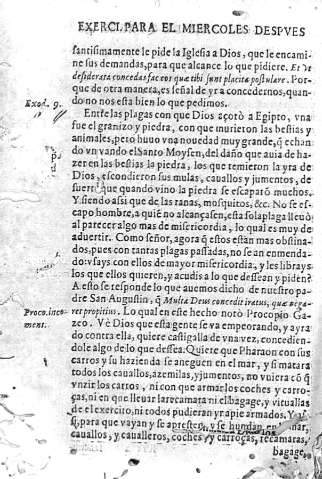 EXERCI. PARA EL MIERCOLES DESPVES
santissimamente le pide la Iglesia a Dios, que le encami
ne sus demandas, para que alcance lo que pidiere. Et vt
desiderata concedas fac eos quæ tibi sunt placita postulare. Por-
que de otra manera, es señal de yra concedernos, quan-
do no nos està bien lo que pedimos.
Exod. 9.
Entre las plagas con que Dios açotò a Egipto, vna
fue el granizo y piedra, con que murieron las bestias y
animales, pero huuo vna nouedad muy grande, q̃ echan
do vn vando el Santo Moysen, del daño que auia de ha-
zer en las bestias la piedra, los que temieron la yra de
Dios, escondieron sus mulas, cauallos, y jumentos, de
suerte que quando vino la piedra se escaparõ muchos.
Y siendo assi que de las ranas, mosquitos, &c. No se es-
capo hombre, a quiẽ no alcançasen, esta sola plaga lleuò
al parecer algo mas de misericordia, lo qual es muy de
aduertir. Como señor, agora q̃ estos estan mas obstina-
dos, pues con tantas plagas passadas, no se an enmenda-
do: vsays con ellos de mayor misericordia, y les librays
los que ellos quieren, y acudis a lo que dessean y piden?
A esto se responde lo que auemos dicho de nuestro pa-
dre San Augustin, q̃ Multa Deus concedit iratus, quæ nega-
ret propitius. Lo qual en este hecho notò Procopio Ga-
Proco. in co-
ment.
zeo. Vè Dios que esta gente se va empeorando, y ayra
do contra ella, quiere castigalla de vna vez, concedien-
dole algo de lo que dessea. Quiere que Pharaon con sus
carros y su hazienda se aneguen en el mar, y si matara
todos los cauallos, azemilas, y jumentos, no vuiera cõ q̃
vnzir los carros, ni con que armar los coches y carro-
ças, ni en que lleuar la recamara ni el bagage, y vituallas
de el exercito, ni todos pudieran yr a pie armados. Y
si, para que vayan y se apresten, y se hundan en mar,
cauallos, y caualleros, coches y carroças, recamaras,
bagage,